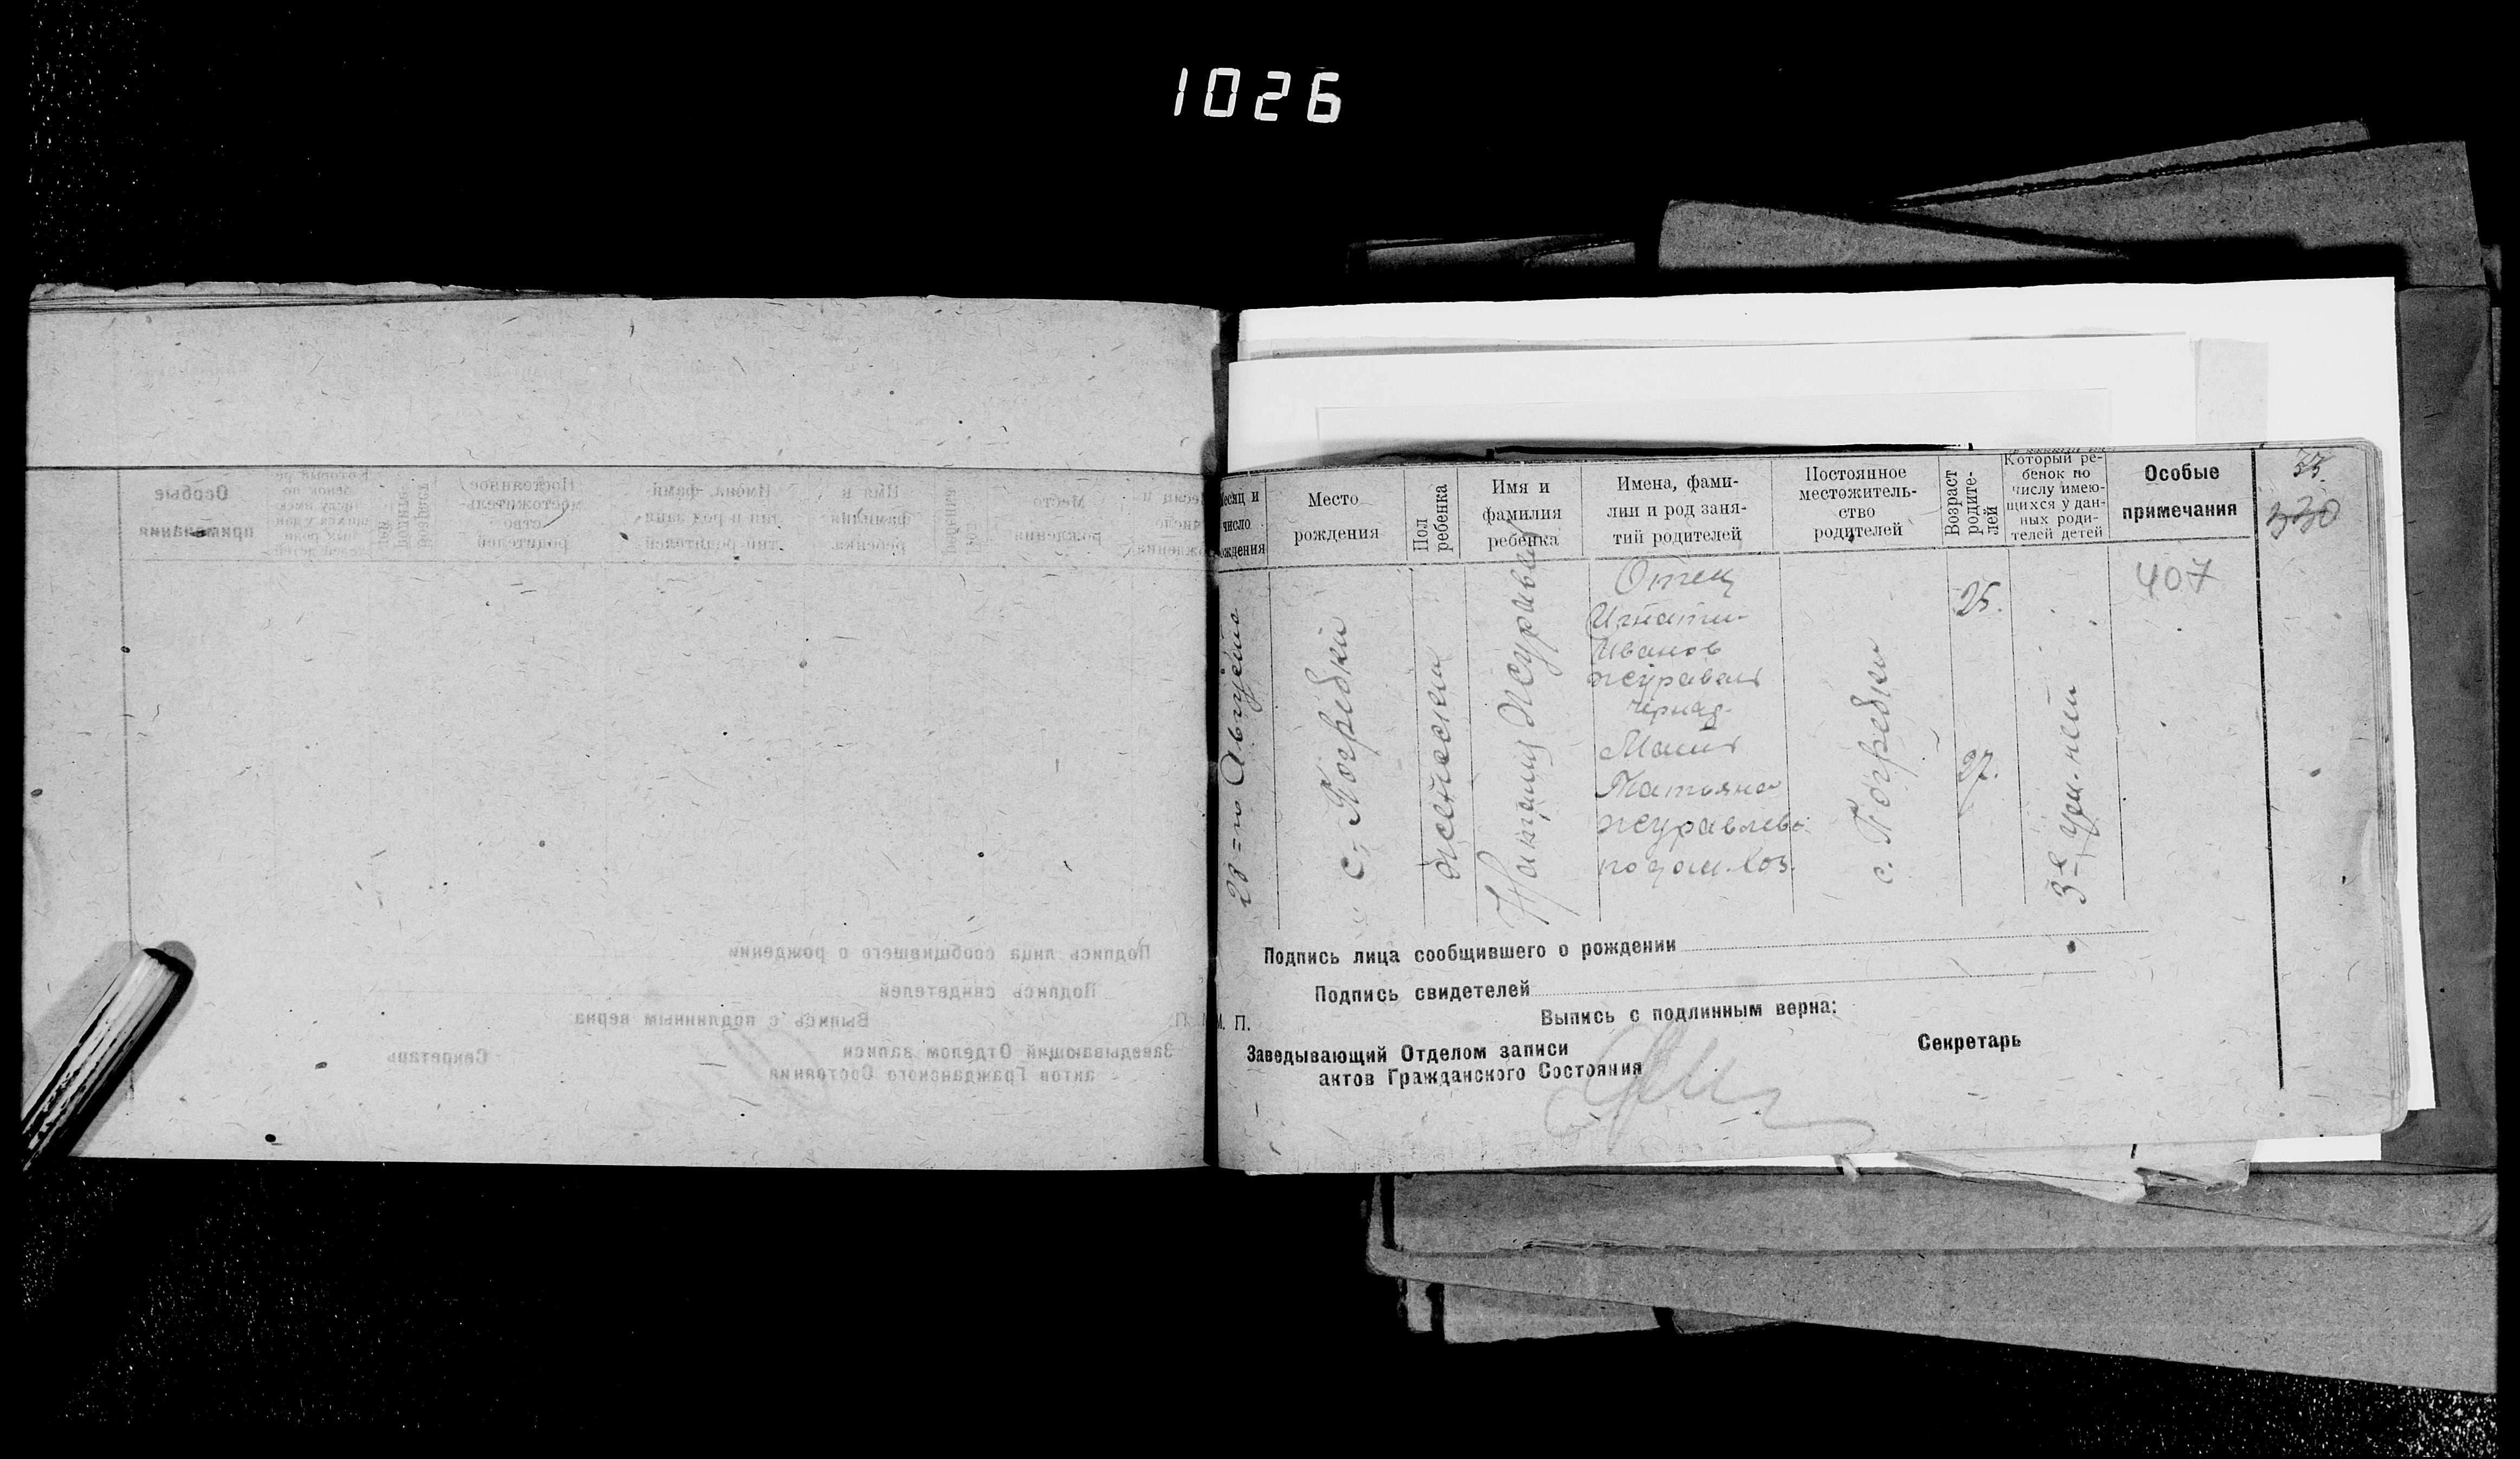 1026
Месяц и число рождения
Место рождения
Пол ребенка
Имя и фамилия ребенка
Имена, фами-
лии и род заня-
тий родителей
Постоянное
местожитель-
ство
родителей
Возраст
родите-
лей
Который ре-
бенок по
числу имею-
щихся у дан-
ных роди-
телей детей
Особые
примечания
33.
330
28 = го Августа
с. Погребки
женский
Журавль
Отец
Игнатий
Иванов
журавль
Мать
Татьяна
журавлева
по дом. хоз.
с. Погребки
25.
27.
3-е
407
Подпись лица сообщившего о рождении
Подпись свидетелей
М. П.
Выпись с подлинным верна:
Заведывающий Отделом записи
актов Гражданского Состояния
Секретарь